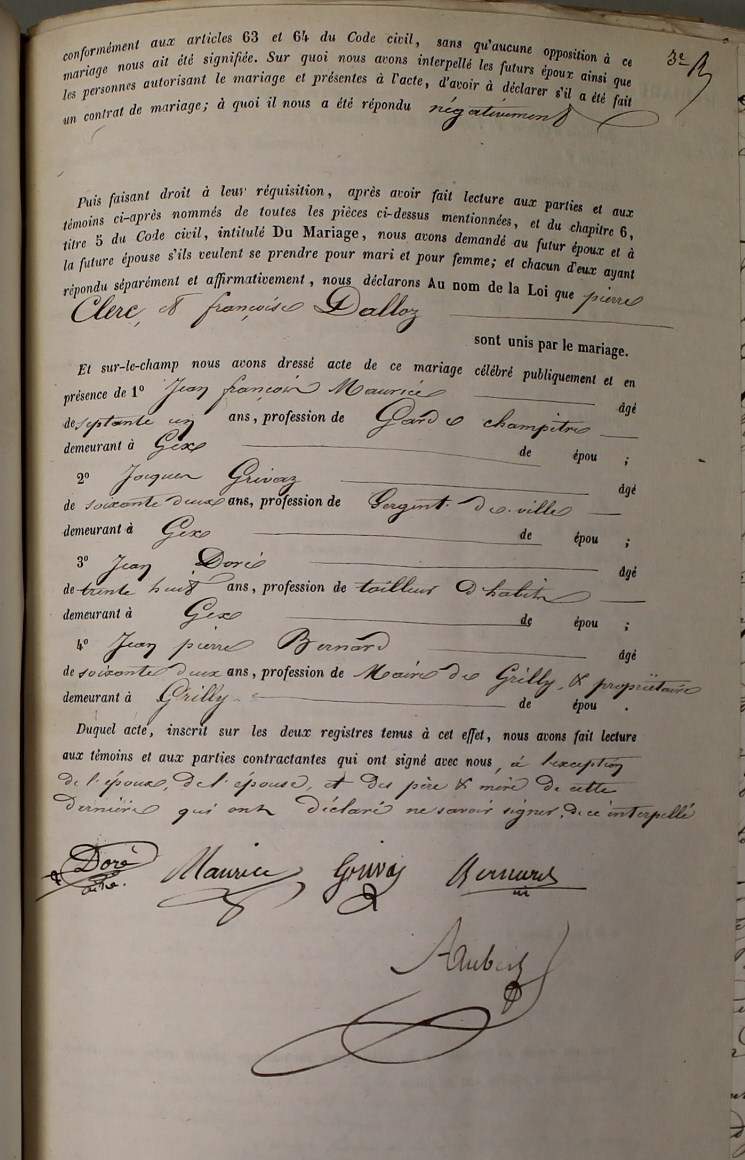 3e
conformément aux articles 63 et 64 du Code civil, sans qu'aucune opposition à ce
mariage nous ait été signifiée. Sur quoi nous avons interpellé les futurs époux ainsi que
les personnes autorisant le mariage et présentes à l'acte, d'avoir à déclarer s'il a été fait
un contrat de mariage; à quoi il nous a été répondu négativement
Puis faisant droit à leur réquisition, après avoir fait lecture aux parties et aux
témoins ci-après nommés de toutes les pièces ci-dessus mentionnées, et du chapitre 6,
titre 5 du Code civil, intitulé Du Mariage, nous avons demandé au futur époux et à
la future épouse s'ils veulent se prendre pour mari et pour femme; et chacun d'eux ayant
répondu séparément et affirmativement, nous déclarons Au nom de la Loi que pierre
Clerc, et françoise Dalloz
sont unis par le mariage.
Et sur-le-champ nous avons dressé acte de ce mariage célébré publiquement et en
présence de 1o Jean françois Maurice âgé
de septante un ans, profession de Garde champêtre
demeurant à Gex de épou ;
2o Jacques Grivaz âgé
de soixante deux ans, profession de Sergent de ville
demeurant à Gex de épou ;
3o Jean Doré âgé
de trente huit ans, profession de tailleur d'habits
demeurant à Gex de épou ;
4o Jean pierre Bernard âgé
de soixante deux ans, profession de Maire de Grilly, & propriétaire
demeurant à Grilly de épou .
Duquel acte, inscrit sur les deux registres tenus à cet effet, nous avons fait lecture
aux témoins et aux parties contractantes qui ont signé avec nous, à l'exception
de l'époux, de l'épouse, et des père & mère de cette
dernière qui ont déclaré ne savoir signer, de ce interpellé
Doré Maurice Grivaz Bernard
Aubert